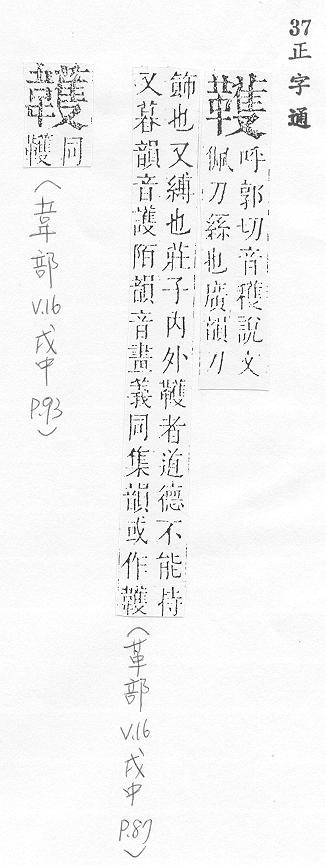 37正字通
韄
呼郭切音穫說文
佩刀絲也廣韻刀
飾也又縛也莊子內外韄者道德不能持
又暮韻音護陌韻音畫義同集韻或作
(革部 V.16 戌中 P.87)
同
韄
(韋部 V.16 戌中 P.93)